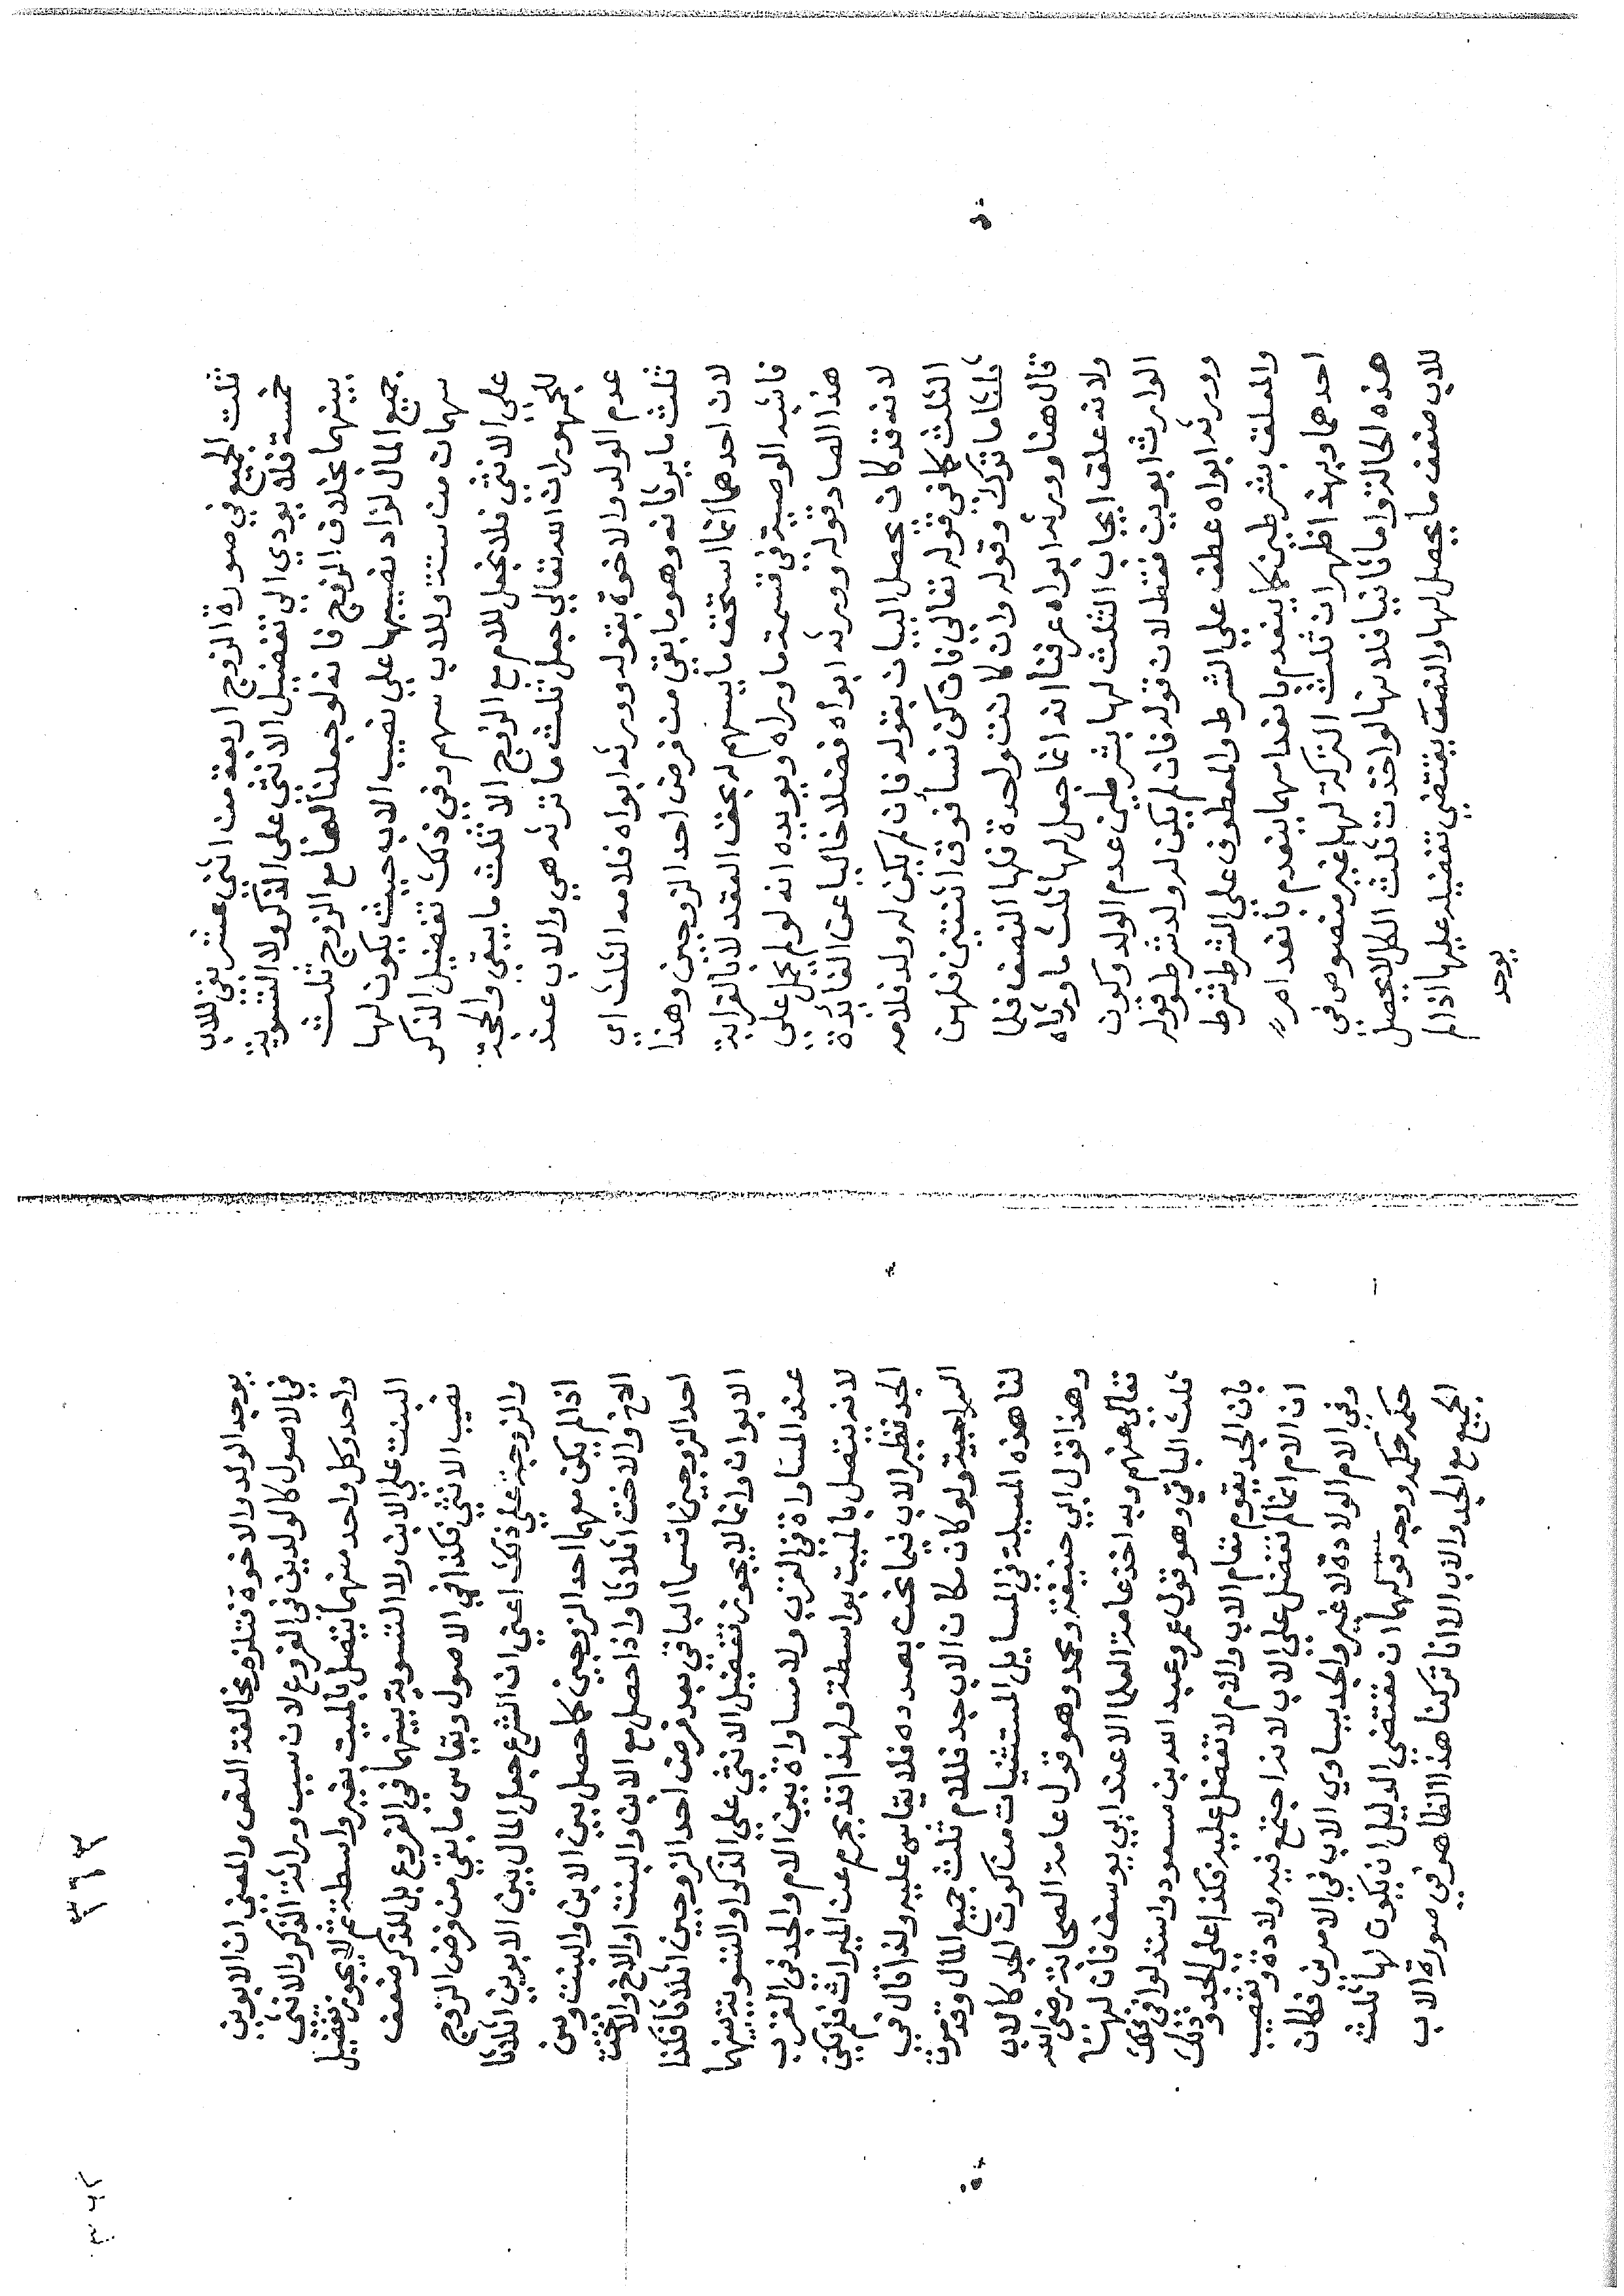 ثلث الجميع في صورة الزوج اربعة من اثنى عشر بقي للاب
خمسة فلا يودي الي تفضيل الانثى على الذكر ولا التسوية
بينهما بخلاف الزوج فانه لو جعلنا لها مع الزوج ثلث
جميع المال لزاد نصيبها علي نصيب الاب حيث يكون لها
سهمان من ستة وللاب سهم وفي ذلك تفضيل الذكر
علي الانثي فلا يجعل للام مع الزوج الا ثلث ما يبقي والحجة
للجمهور ان الله تعالي جعل ثلث ما ترثه هي والاب عند
عدم الولد والاخوة بقوله وورثه ابواه فلامه الثلث اي
ثلث ما يرثانه وهو ما بقي من فرض احد الزوجين وهذا
لان احدهما انما استحق ما يسهم له بحق العقد لا بالقرابة
فاشبه الوصية في قسمة ما وراه ويويده انه لو لم يحمل علي
هذا الصار قوله وورثه ابواه فضلا خاليا عن الفايدة
لانه قد كان يحصل البيان بقوله فان لم يكن له ولد فلامه
الثلث كما في قوله تعالي فان كن نسأ فوق اثنتين فلهن
ثلثا ما ترك وقوله وان كانت واحدة فلها النصف فلما
قال هنا وورثه ابواه عرفنا انه انما جعل لها ثلث ما ورثاه
ولانه علق ايجاب الثلث لها بشرطين عدم الولد وكون
الوارث ابوين فقط لان قوله فان لم يكن له ولد شرط وقوله
وورثه ابواه عطف علي الشرط والمعطوف علي الشرط شرط
والمعلق بشرطين كما ينعدم بانعدامهما ينعدم بانعدام
احدهما وبهذا ظهر ان ثلث التركة لها غير منصوص في
هذه الحالة واما ثانيا فلانها لو اخذت ثلث الكل لايحصل
للاب ضعف ما يحصل لها والنص يقتضي تفضيله عليها اذا لم
يوجد
٣٦٣
يوجد الولد والاخوة فتلزم مخالفة النص والمعنى ان الابوين
في الاصول كالولدين في الفروع لان سبب وراثة الذكر والانثى
واحد وكل واحد منهما يتصل بالميت بغير واسطة ثم لا يجوز تفضيل
البنت علي الابن ولا التسوية بينهما في الفروع بل للذكر ضعف
نصيب الانثي فكذا في الاصول ويقاس ما بقي من فرض الزوج
والزوجة علي ذلك اعني ان الشرع جعل المال بين الابوين اثلاثا
اذا لم يكن معهما احد الزوجين كما حصل بين الابن والبنت وبين
الاخ والاخت اثلاثا واذا حصل مع الابن والبنت او الاخ والاخت
احد الزوجين قاسما الباقي بعد فرض احد الزوجين اثلاثا فكذا
الابوان وانما لا يجوز تفضيل الانثي علي الذكر او التسوية بينهما
عند المساواة في القرب ولا مساواة بين الام والجد في القرب
لانه يتصل بالميت بواسطة ولهذا قد يحرم عن الميراث فلم يكن
الجد نظير الاب فيما نحن بصدده فلا يقاس عليه ولذا قال في
السراجية ولو كان مكان الاب جد فللام ثلث جميع المال وقد مرت
لنا هذه المسيلة في المسايل المستثنيات من كون الجد كالاب
وهذا قول ابي حنيفة ومحمد وهو قول عامة الصحابة رضي الله
تعالي عنهم وبه اخذ عامة العلما الا عند ابي يوسف فان لها
ثلث الباقي وهو قول عمر وعبد الله بن مسعود واستدلوا في ذلك
بان الجد يقوم مقام الاب والام لا تفضل عليه فكذا علي الجد وذلك
ان الام انما لم تفضل علي الاب لانه اجتمع فيه ولادة وتعصيب
وفي الام الولادة لا غير والجد يساوي الاب في الامرين فكان
حكمه حكمه ووجه قولهما ان مقتضي الدليل ان يكون لها ثلث
الجميع مع الجد والاب الا انا تركنا هذا الظاهر في صورة الاب